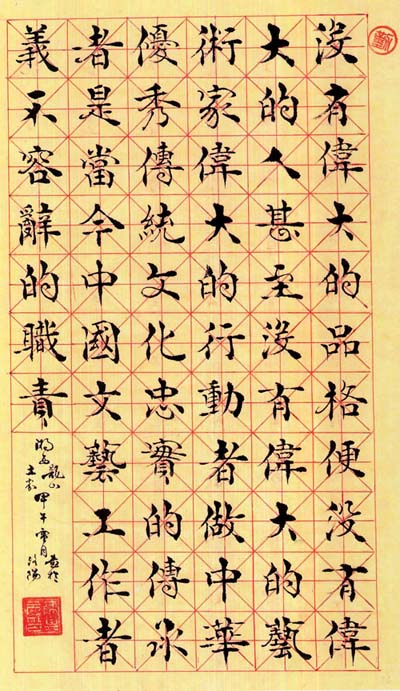 没有偉大的品格便没有偉
大的人甚至没有偉大的藝
術家偉大的行動者做中華
優秀傳統文化忠實的傳承
者是當今中國文藝工作者
義不容辭的職責
甲午